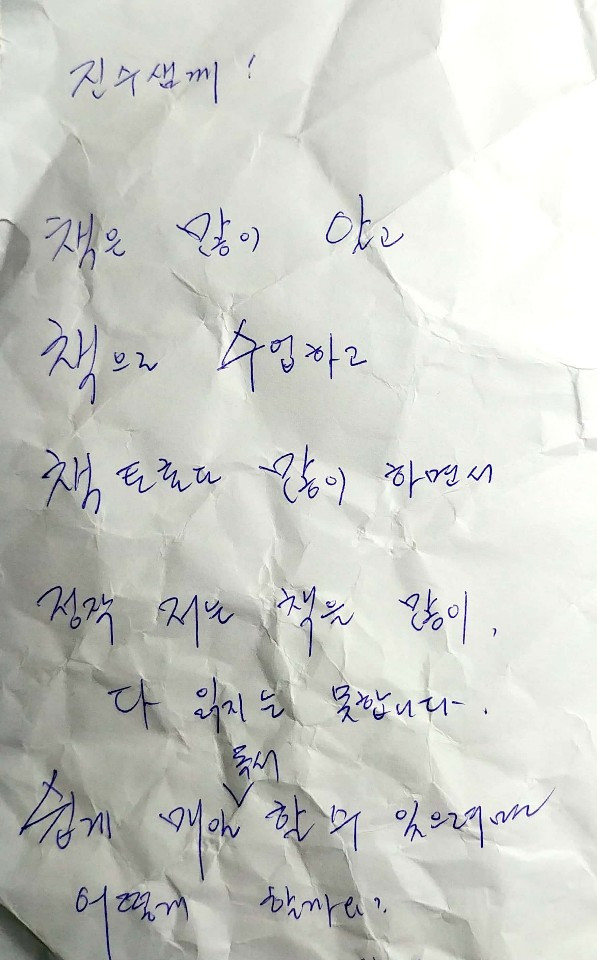 진수샘께!
책은 많이 않고
책으로 수업하고
책 토론도 많이 하면서
정작 저는 책을 많이,
다 읽지는 못합니다.
독서
쉽게 매일 할 수 있으려면
어떻게 할까요?